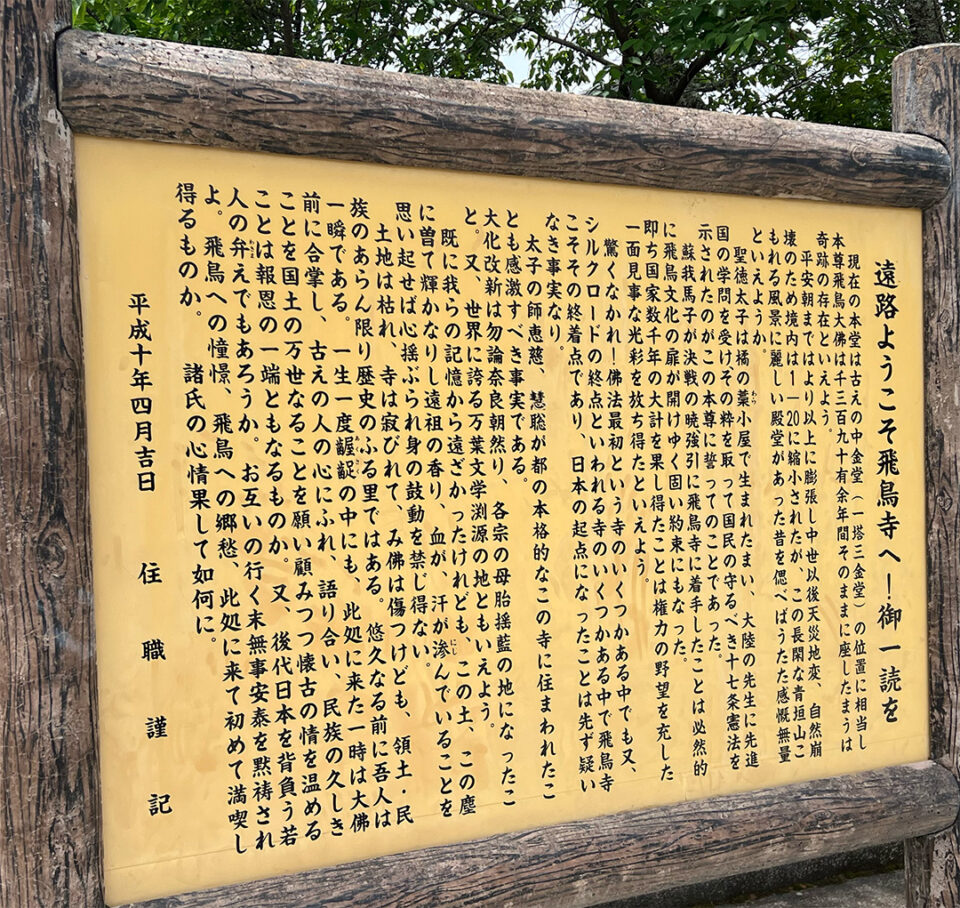 遠路ようこそ飛鳥寺へ！御一読を
現在の本堂は古えの中金堂（一塔三金堂）の位置に相当し
本尊飛鳥大佛は千三百九十有余年間そのままに座したまうは
奇跡の存在といえよう。
平安朝まではより以上に膨張し中世以後天災地変、自然崩
壊のため境内は1―20に縮小されたが、この長閑な青垣山こ
もれる風景に麗しい殿堂があった昔を偲べばうたた感慨無量
といえようか。
聖徳太子は橘の藁小屋で生まれたまい、大陸の先生に先進
国の学問を受けその粋を取って国民の守るべき十七条憲法を
示されたのがこの本尊に誓ってのことであった。
蘇我馬子が決戦の暁強引に飛鳥寺に着手したことは必然的
に飛鳥文化の扉が開けゆく固い約束にもなった。
即ち国家数千年の大計を果し得たことは権力の野望を充した
一面見事な光彩を放ち得たといえよう。
驚くなかれ！佛法最初という寺のいくつかある中でも又、
シルクロードの終点といわれる寺のいくつかある中で飛鳥寺
こそその終着点であり、日本の起点になったことは先ず疑い
なき事実なり。
太子の師恵慈、慧聡が都の本格的なこの寺に住まわれたこ
とも感激すべき事実である。
大化改新は勿論奈良朝然り、各宗の母胎揺藍の地になったこ
と。又、世界に誇る万葉文学渊源の地ともいえよう。
既に我らの記憶から遠ざかったけれども、この土、この塵
に曽て輝かなりし遠祖の香り、血が、汗が滲んでいることを
思い起せば心揺ぶられ身の鼓動を禁じ得ない。
土地は枯れ、寺は寂びれて、み佛は傷つけども、領土・民
族のあらん限り歴史のふる里ではある。悠久なる前に吾人は
一瞬である。一生一度齷齪の中にも、此処に来た一時は大佛
前に合掌し、古えの人の心にふれ、語り合い、民族の久しき
ことを国土の万世なることを願い顧みつつ懐古の情を温める
ことは報恩の一端ともなるものか。又、後代日本を背負う若
人の弁えでもあろうか。お互いの行く末無事安泰を黙祷され
よ。飛鳥への憧憬、飛鳥への郷愁、此処に来て初めて満喫し
得るものか。
諸氏の心情果して如何に。
平成十年四月吉日　住職謹記